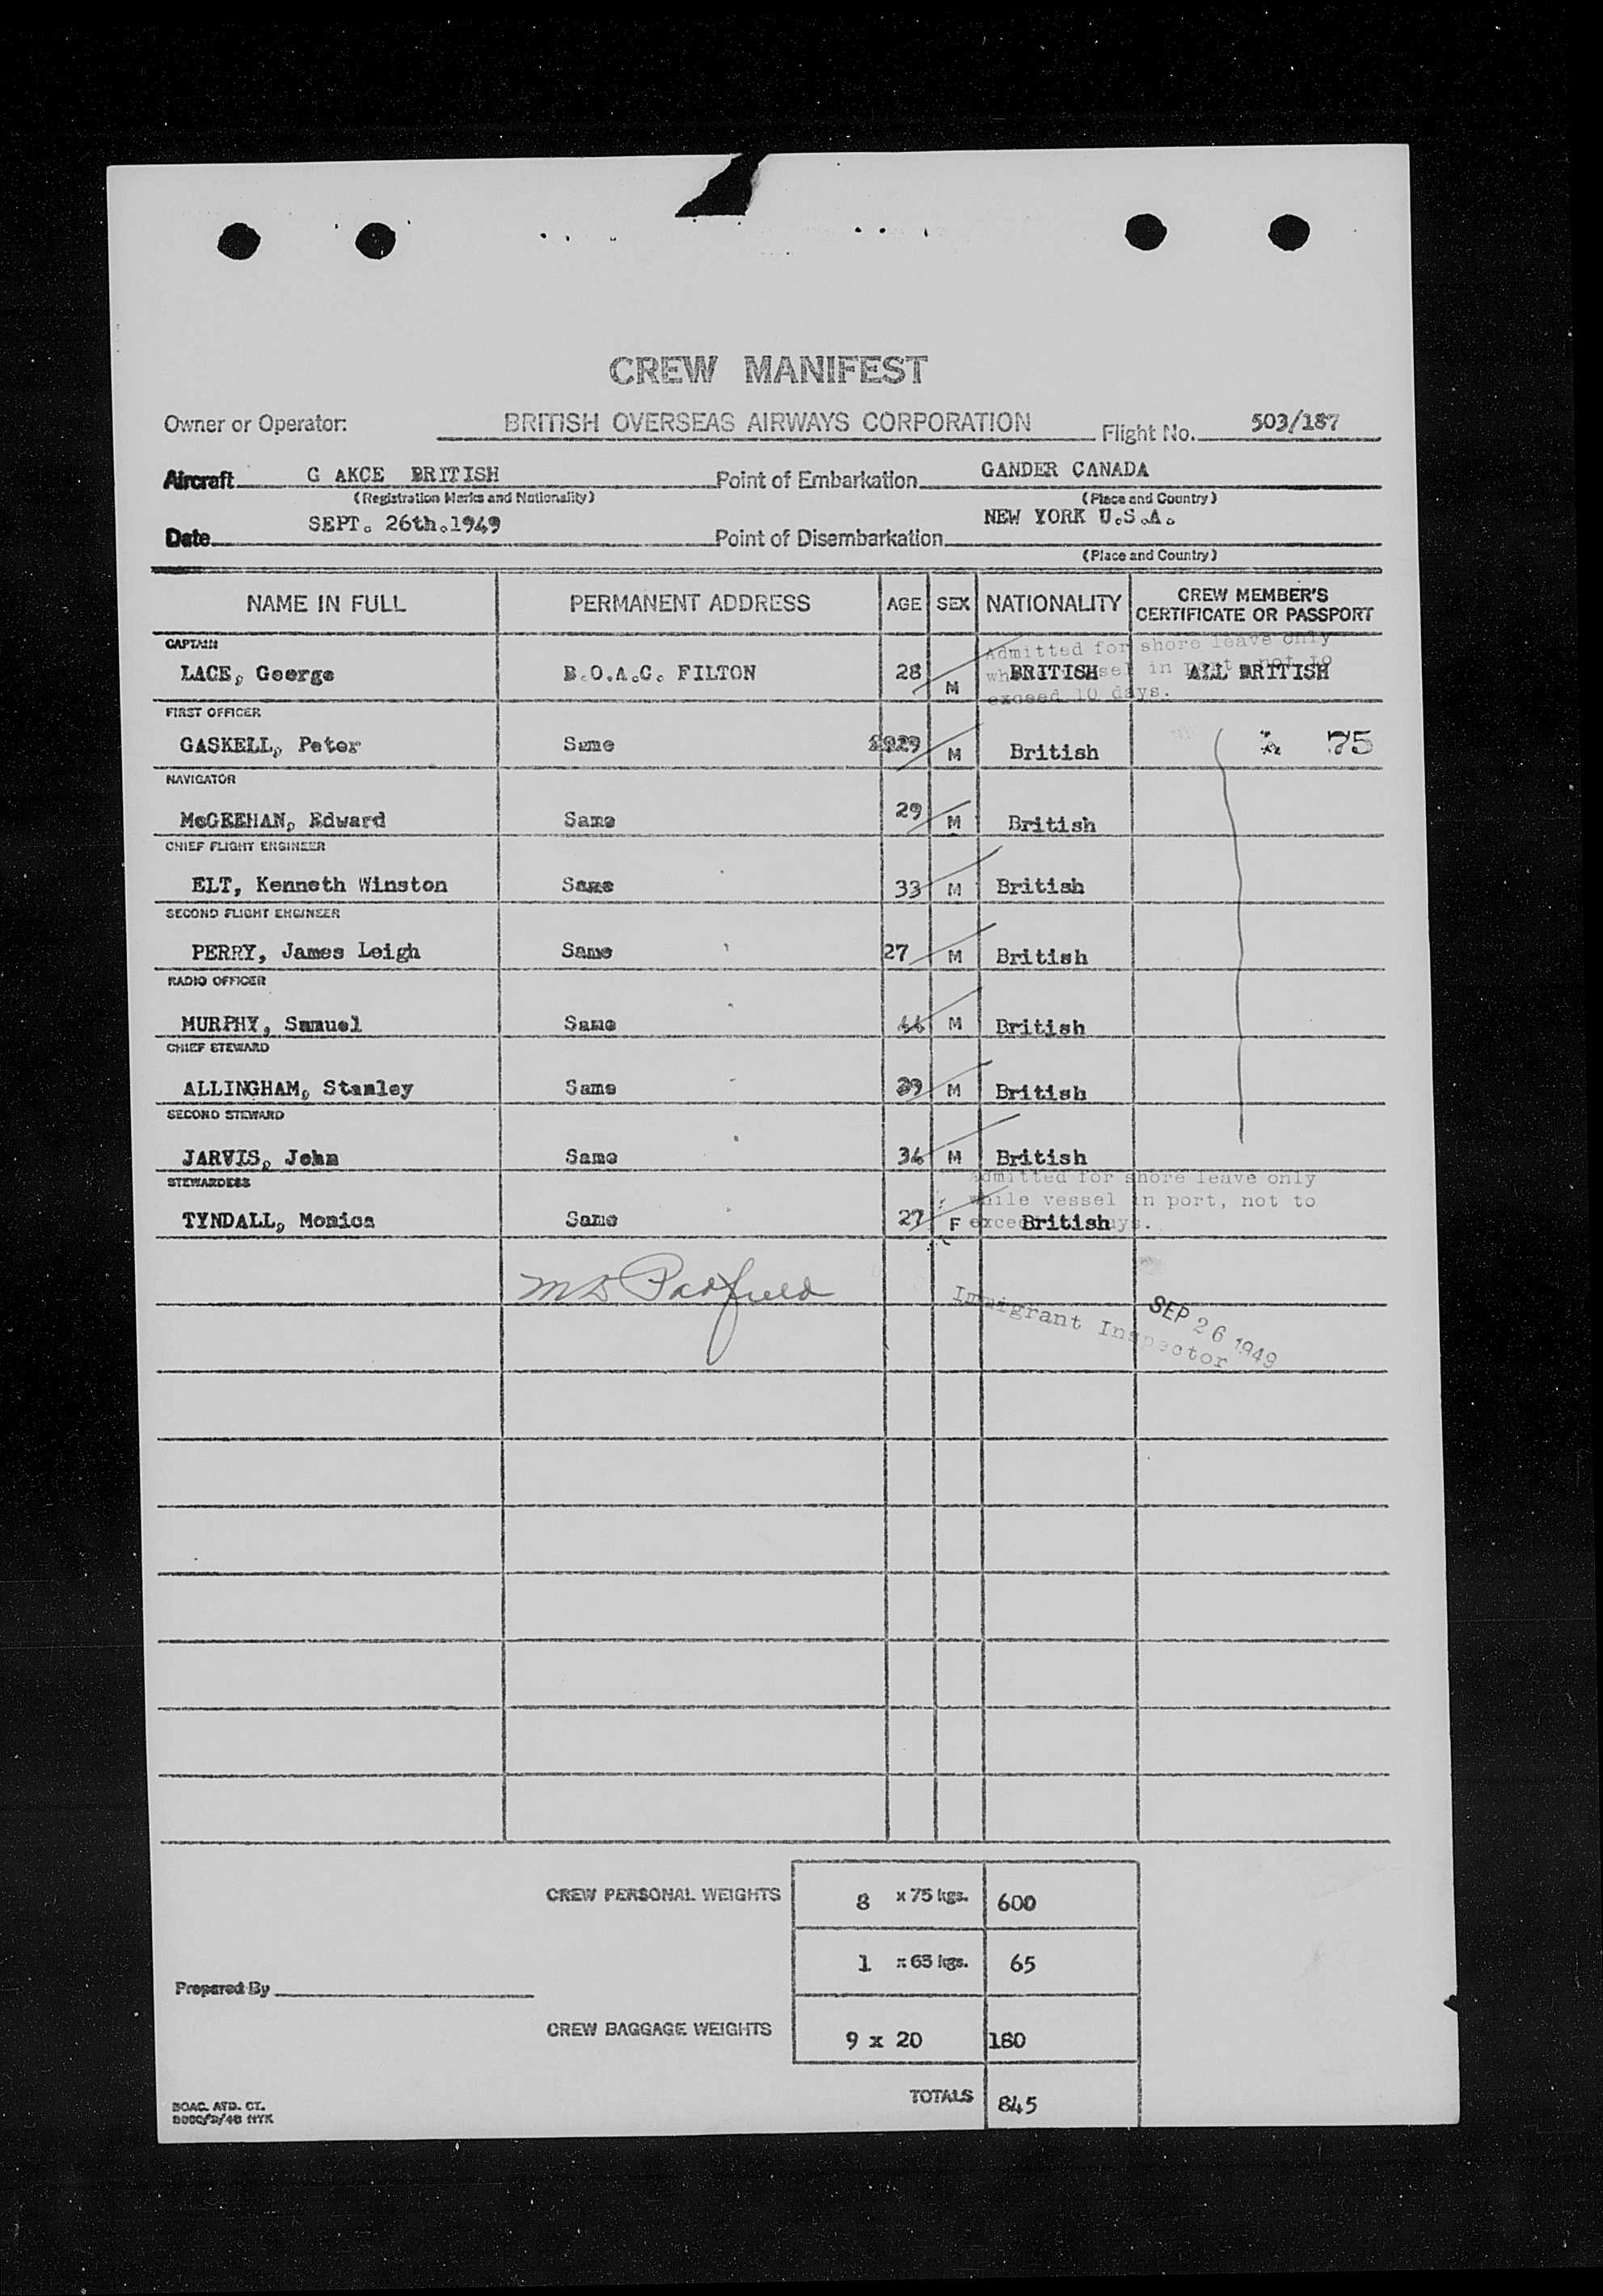 CREW MANIFEST
Owner or Operator: BRITISH OVERSEAS AIRWAYS CORPORATION Flight No. 503/187
Aircraft G AKCE BRITISH Point of Embarkation GANDER CANADA
(Registration Marks and Nationality) (Place and Country)
Date SEPT. 26th.1949 Point of Disembarkation NEW YORK U.S.A.
(Place and Country)
NAME IN FULL PERMANENT ADDRESS AGE SEX NATIONALITY CREW MEMBER'S CERTIFICATE OR PASSPORT
CAPTAIN
Admitted for shore leave only
LACE, George B.O.A.C. FILTON 28 M BRITISH ALL BRITISH
in port, not to
exceed 10 days.
FIRST OFFICER
GASKELL, Peter Same 29 M British 75
NAVIGATOR
McGEEHAN, Edward Same 29 M British
CHIEF FLIGHT ENGINEER
ELT, Kenneth Winston Same 33 M British
SECOND FLIGHT ENGINEER
PERRY, James Leigh Same 27 M British
RADIO OFFICER
MURPHY, Samuel Same 44 M British
CHIEF STEWARD
ALLINGHAM, Stanley Same 39 M British
SECOND STEWARD
JARVIS, John Same 34 M British
STEWARDESS
Admitted for shore leave only
while vessel in port, not to
TYNDALL, Monica Same 27 F British
M D Padfield
Immigrant Inspector
SEP 26 1949
CREW PERSONAL WEIGHTS 8 x 75 kgs. 600
1 x 65 kgs. 65
Prepared By
CREW BAGGAGE WEIGHTS 9 x 20 180
TOTALS 845
BOAC. ATD. CT.